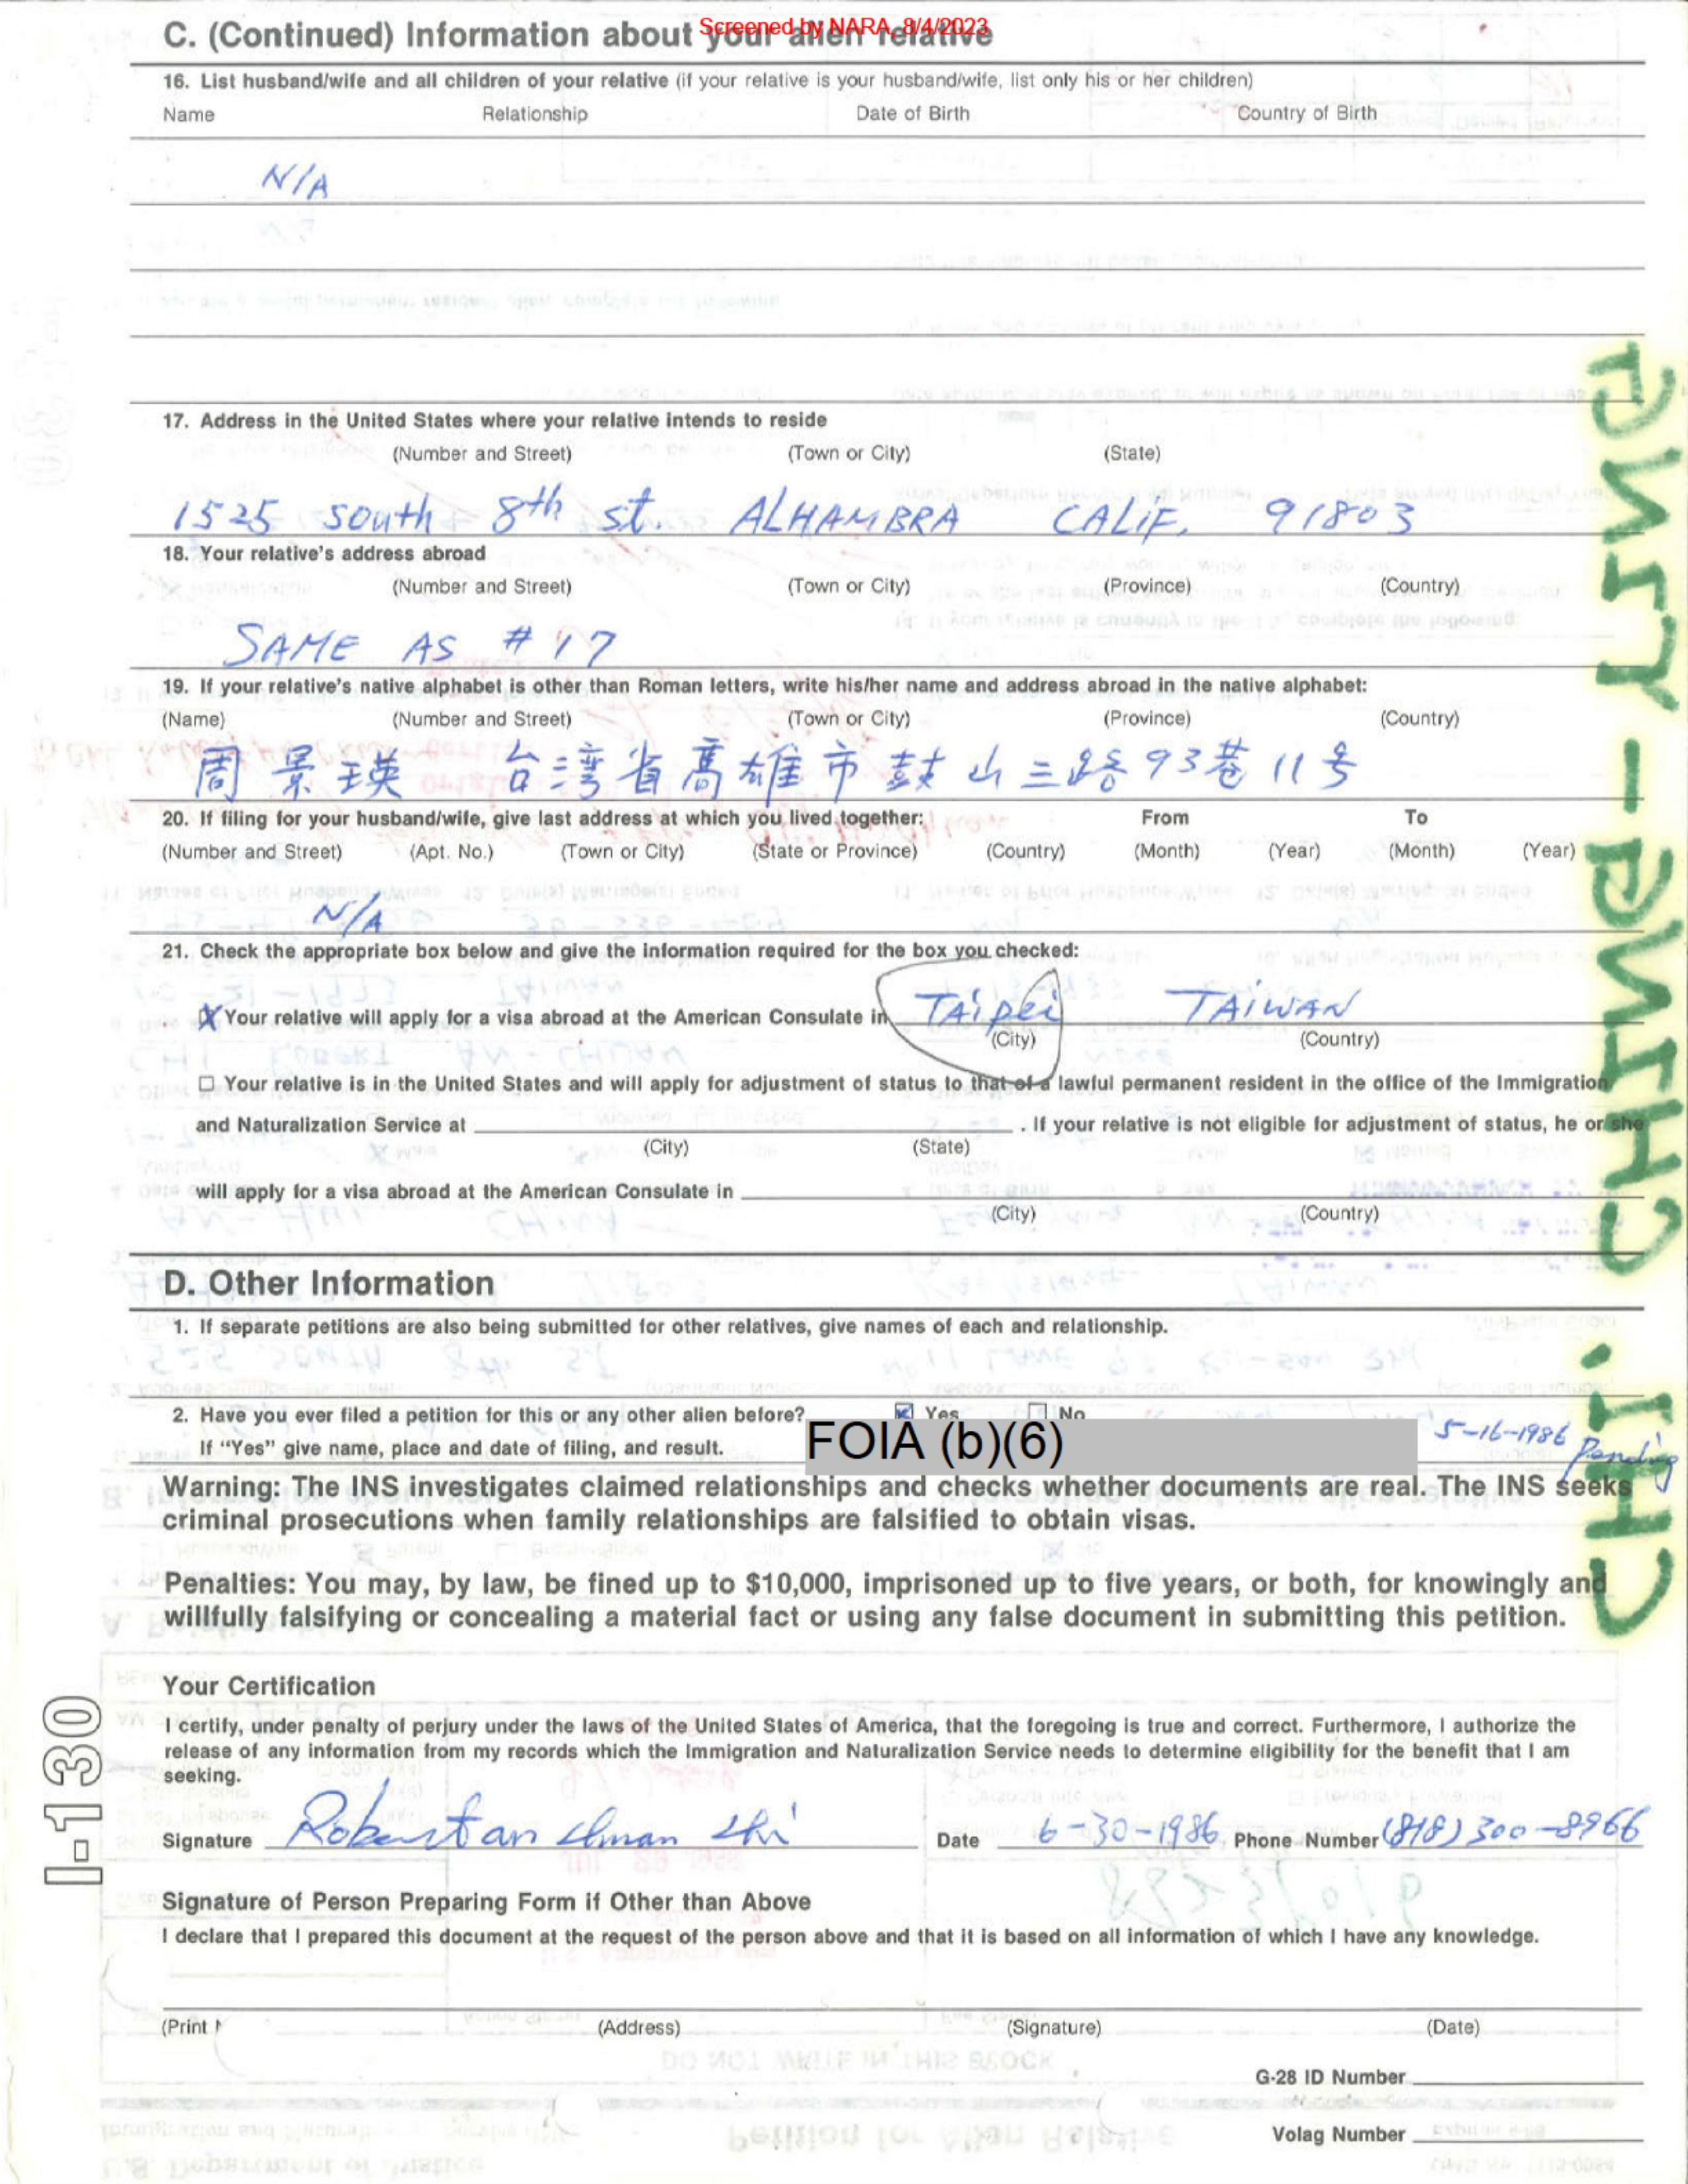 Screened by NARA, 8/4/2023
C. (Continued) Information about your alien relative
16. List husband/wife and all children of your relative (if your relative is your husband/wife, list only his or her children)
Name Relationship Date of Birth Country of Birth
N/A
17. Address in the United States where your relative intends to reside
(Number and Street) (Town or City) (State)
1525 south 8th st. ALHAMBRA CALIF. 91803
18. Your relative's address abroad
(Number and Street) (Town or City) (Province) (Country)
SAME AS #17
19. If your relative's native alphabet is other than Roman letters, write his/her name and address abroad in the native alphabet:
(Name) (Number and Street) (Town or City) (Province) (Country)
周景瑛 台湾省高雄市鼓山三路93巷11号
20. If filing for your husband/wife, give last address at which you lived together: From To
(Number and Street) (Apt. No.) (Town or City) (State or Province) (Country) (Month) (Year) (Month) (Year)
N/A
21. Check the appropriate box below and give the information required for the box you checked:
Your relative will apply for a visa abroad at the American Consulate in TAipei TAiWAN
(City) (Country)
Your relative is in the United States and will apply for adjustment of status to that of a lawful permanent resident in the office of the Immigration
and Naturalization Service at . If your relative is not eligible for adjustment of status, he or she
(City) (State)
will apply for a visa abroad at the American Consulate in
(City) (Country)
D. Other Information
1. If separate petitions are also being submitted for other relatives, give names of each and relationship.
2. Have you ever filed a petition for this or any other alien before? Yes No
If "Yes" give name, place and date of filing, and result. FOIA (b)(6) 5-16-1986 Pending
Warning: The INS investigates claimed relationships and checks whether documents are real. The INS seeks
criminal prosecutions when family relationships are falsified to obtain visas.
Penalties: You may, by law, be fined up to $10,000, imprisoned up to five years, or both, for knowingly and
willfully falsifying or concealing a material fact or using any false document in submitting this petition.
Your Certification
I certify, under penalty of perjury under the laws of the United States of America, that the foregoing is true and correct. Furthermore, I authorize the
release of any information from my records which the Immigration and Naturalization Service needs to determine eligibility for the benefit that I am
seeking.
Signature Robert an chuan chi Date 6-30-1986 Phone Number (818) 300-8966
Signature of Person Preparing Form if Other than Above
I declare that I prepared this document at the request of the person above and that it is based on all information of which I have any knowledge.
(Print (Address) (Signature) (Date)
G-28 ID Number
Volag Number
I-130